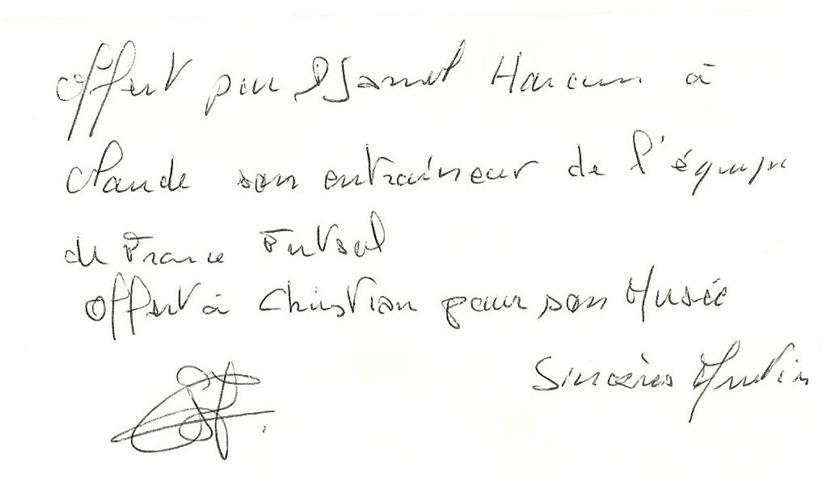 Offert par Djamel Haroun à
Claude son entraîneur de l'équipe
de France Futsal
Offert à Christian pour son Musée
Sincères